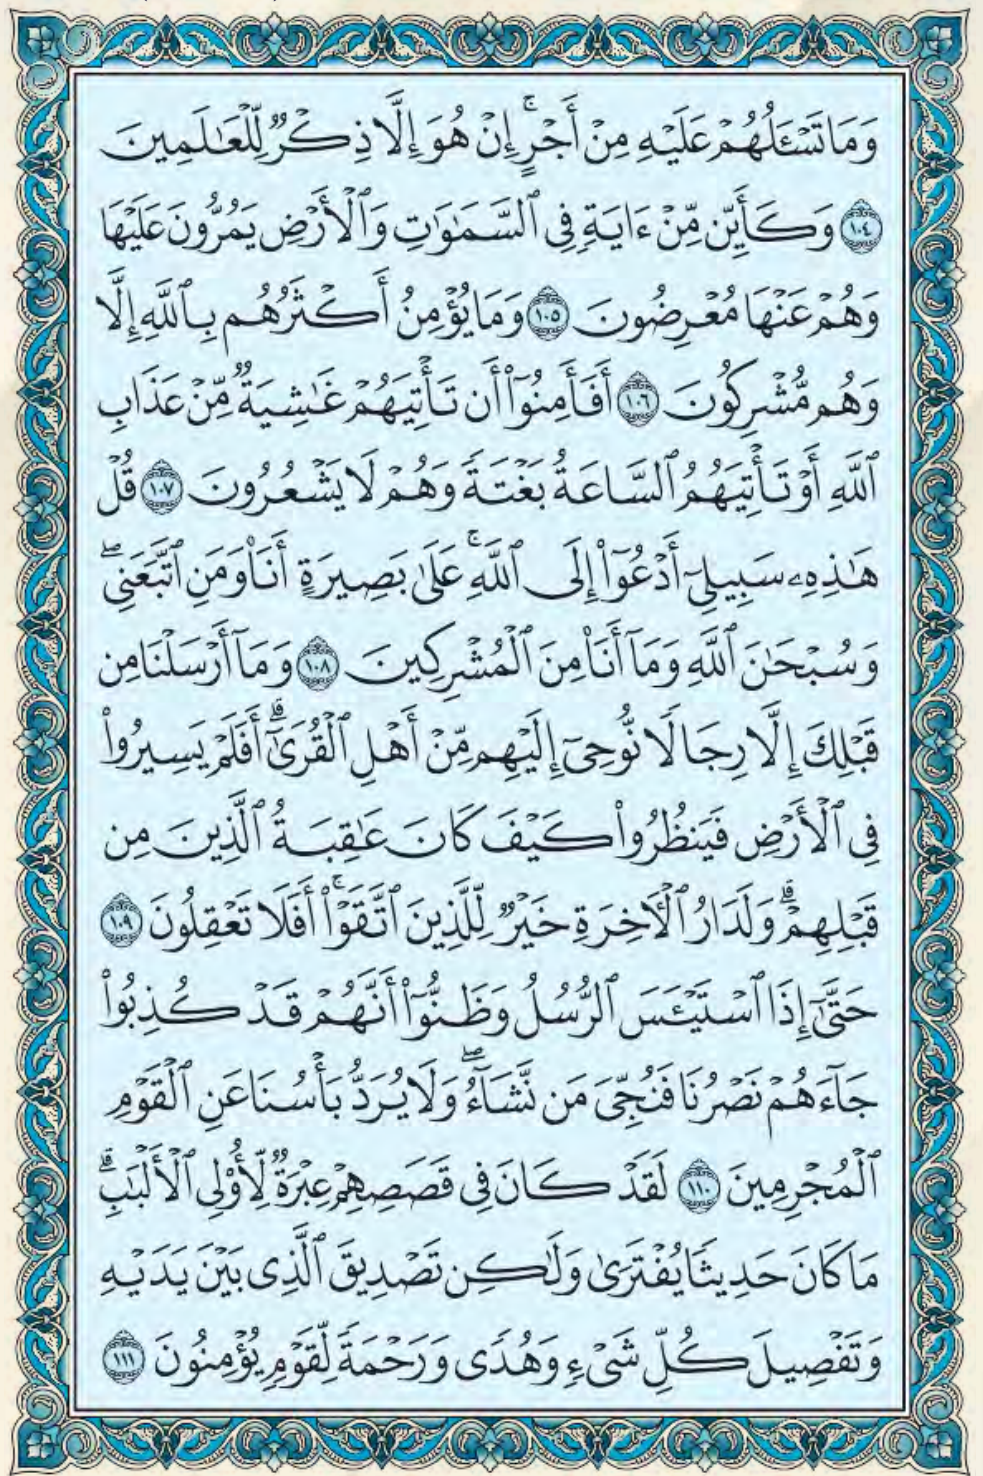 وَمَا تَسْـَٔلُهُمْ عَلَيْهِ مِنْ أَجْرٍ ۚ إِنْ هُوَ إِلَّا ذِكْرٌ لِّلْعَـٰلَمِينَ
١٠٤ وَكَأَيِّن مِّنْ ءَايَةٍ فِى ٱلسَّمَـٰوَٰتِ وَٱلْأَرْضِ يَمُرُّونَ عَلَيْهَا
وَهُمْ عَنْهَا مُعْرِضُونَ ١٠٥ وَمَا يُؤْمِنُ أَكْثَرُهُم بِٱللَّهِ إِلَّا
وَهُم مُّشْرِكُونَ ١٠٦ أَفَأَمِنُوٓا۟ أَن تَأْتِيَهُمْ غَـٰشِيَةٌ مِّنْ عَذَابِ
ٱللَّهِ أَوْ تَأْتِيَهُمُ ٱلسَّاعَةُ بَغْتَةً وَهُمْ لَا يَشْعُرُونَ ١٠٧ قُلْ
هَـٰذِهِۦ سَبِيلِىٓ أَدْعُوٓا۟ إِلَى ٱللَّهِ ۚ عَلَىٰ بَصِيرَةٍ أَنَا۠ وَمَنِ ٱتَّبَعَنِى ۖ
وَسُبْحَـٰنَ ٱللَّهِ وَمَآ أَنَا۠ مِنَ ٱلْمُشْرِكِينَ ١٠٨ وَمَآ أَرْسَلْنَا مِن
قَبْلِكَ إِلَّا رِجَالًا نُّوحِىٓ إِلَيْهِم مِّنْ أَهْلِ ٱلْقُرَىٰٓ ۗ أَفَلَمْ يَسِيرُوا۟
فِى ٱلْأَرْضِ فَيَنظُرُوا۟ كَيْفَ كَانَ عَـٰقِبَةُ ٱلَّذِينَ مِن
قَبْلِهِمْ ۗ وَلَدَارُ ٱلْـَٔاخِرَةِ خَيْرٌ لِّلَّذِينَ ٱتَّقَوْا۟ ۚ أَفَلَا تَعْقِلُونَ ١٠٩
حَتَّىٰٓ إِذَا ٱسْتَيْـَٔسَ ٱلرُّسُلُ وَظَنُّوٓا۟ أَنَّهُمْ قَدْ كُذِبُوا۟
جَآءَهُمْ نَصْرُنَا فَنُجِّىَ مَن نَّشَآءُ ۖ وَلَا يُرَدُّ بَأْسُنَا عَنِ ٱلْقَوْمِ
ٱلْمُجْرِمِينَ ١١٠ لَقَدْ كَانَ فِى قَصَصِهِمْ عِبْرَةٌ لِّأُو۟لِى ٱلْأَلْبَـٰبِ ۗ
مَا كَانَ حَدِيثًا يُفْتَرَىٰ وَلَـٰكِن تَصْدِيقَ ٱلَّذِى بَيْنَ يَدَيْهِ
وَتَفْصِيلَ كُلِّ شَىْءٍ وَهُدًى وَرَحْمَةً لِّقَوْمٍ يُؤْمِنُونَ ١١١